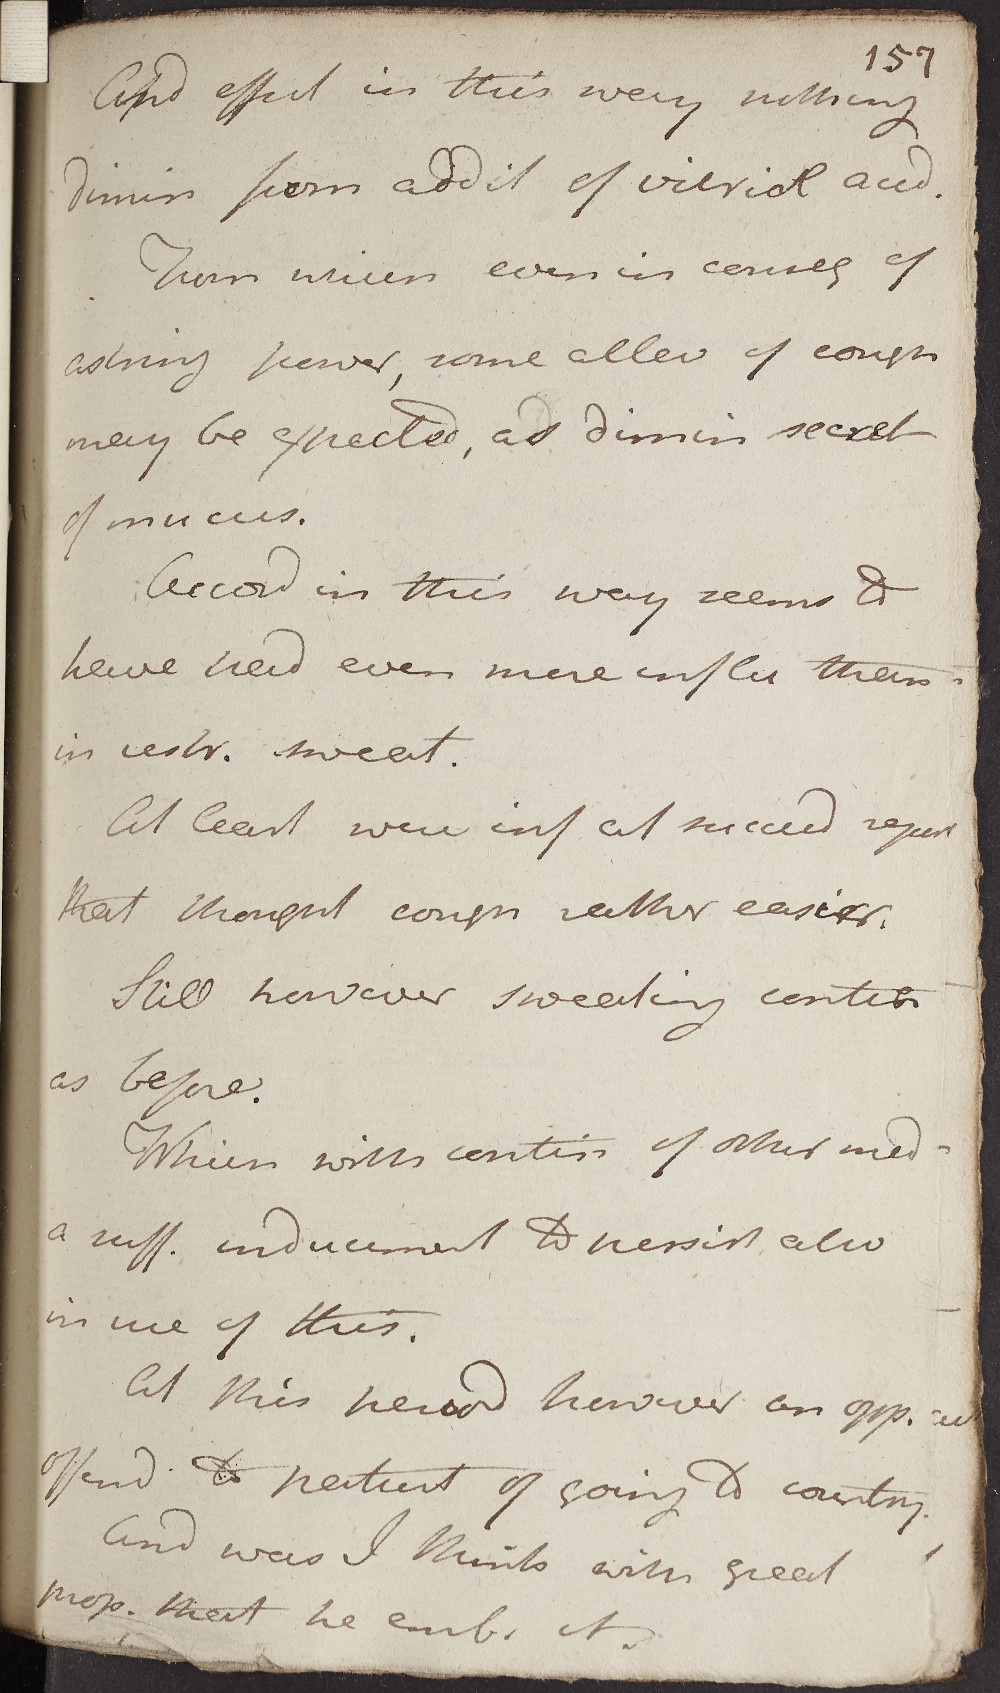 157
And effect in this way nothing
dimin from addit of vitriol acid.
From which even in conseq of
astring power, some allev of cough
may be expected, as dimin secret
of mucus.
Accord in this way seems to
have had even more influ than
in restr. sweat.
At least were inf at succeed report
that thought cough rather easier.
Still however sweating contin
as before.
Which with contin of other med
a suff. inducement to persist also
in use of this.
At this period however an opp.
offerd to patient of going to country.
And was I think with great
prop. that he embr. it.